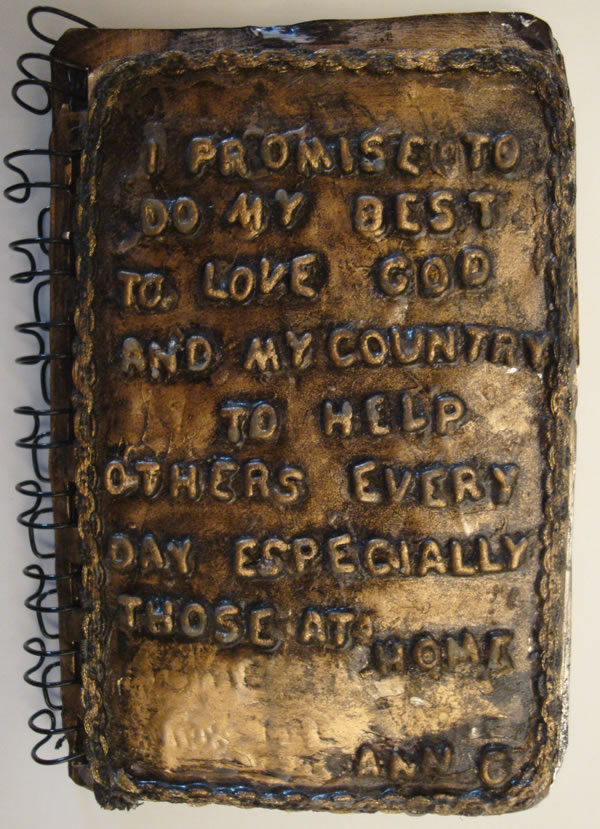 I PROMISE TO
DO MY BEST
TO LOVE GOD
AND MY COUNTRY
TO HELP
OTHERS EVERY
DAY ESPECIALLY
THOSE AT HOME
ANN G